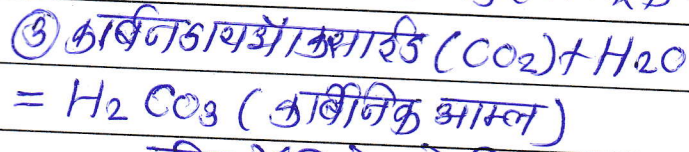 ③ कार्बनडायऑक्साईड (CO2) + H2O
= H2 CO3 (कार्बोनिक आम्ल)